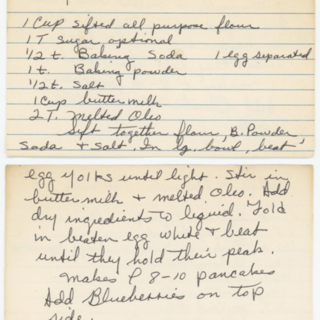 1 Cup sifted all purpose flour
1 T sugar optional
1/2 t. Baking Soda 1 egg separated
1 t. Baking powder
1/2 t. Salt
1 Cup buttermilk
2 T. Melted Oleo
Sift together flour, B. Powder
Soda & Salt. In Lg. bowl, beat
egg yolks until light. Stir in
buttermilk & melted Oleo. Add
dry ingredients to liquid. Fold
in beaten egg white & beat
until they hold their peak.
Makes 8-10 pancakes
Add Blueberries on top
side.